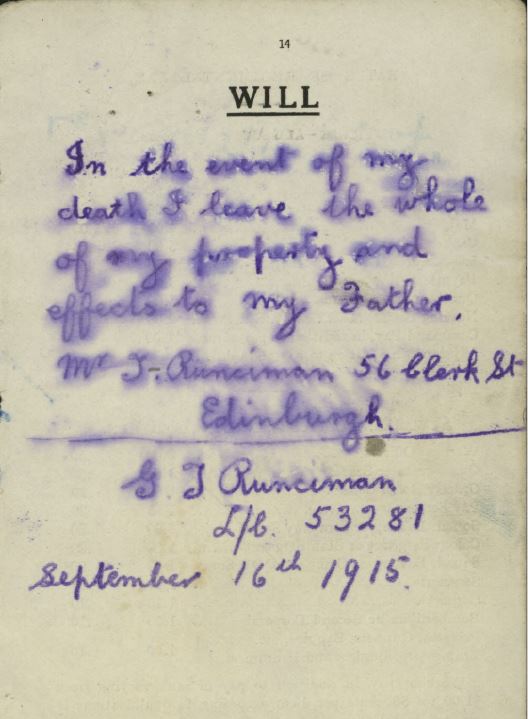 14
WILL
In the event of my
death I leave the whole
of my property and
effects to my Father,
Mr T. Runciman 56 Clerk St
Edinburgh.
G. T Runciman
L/C. 53281
September 16th 1915.